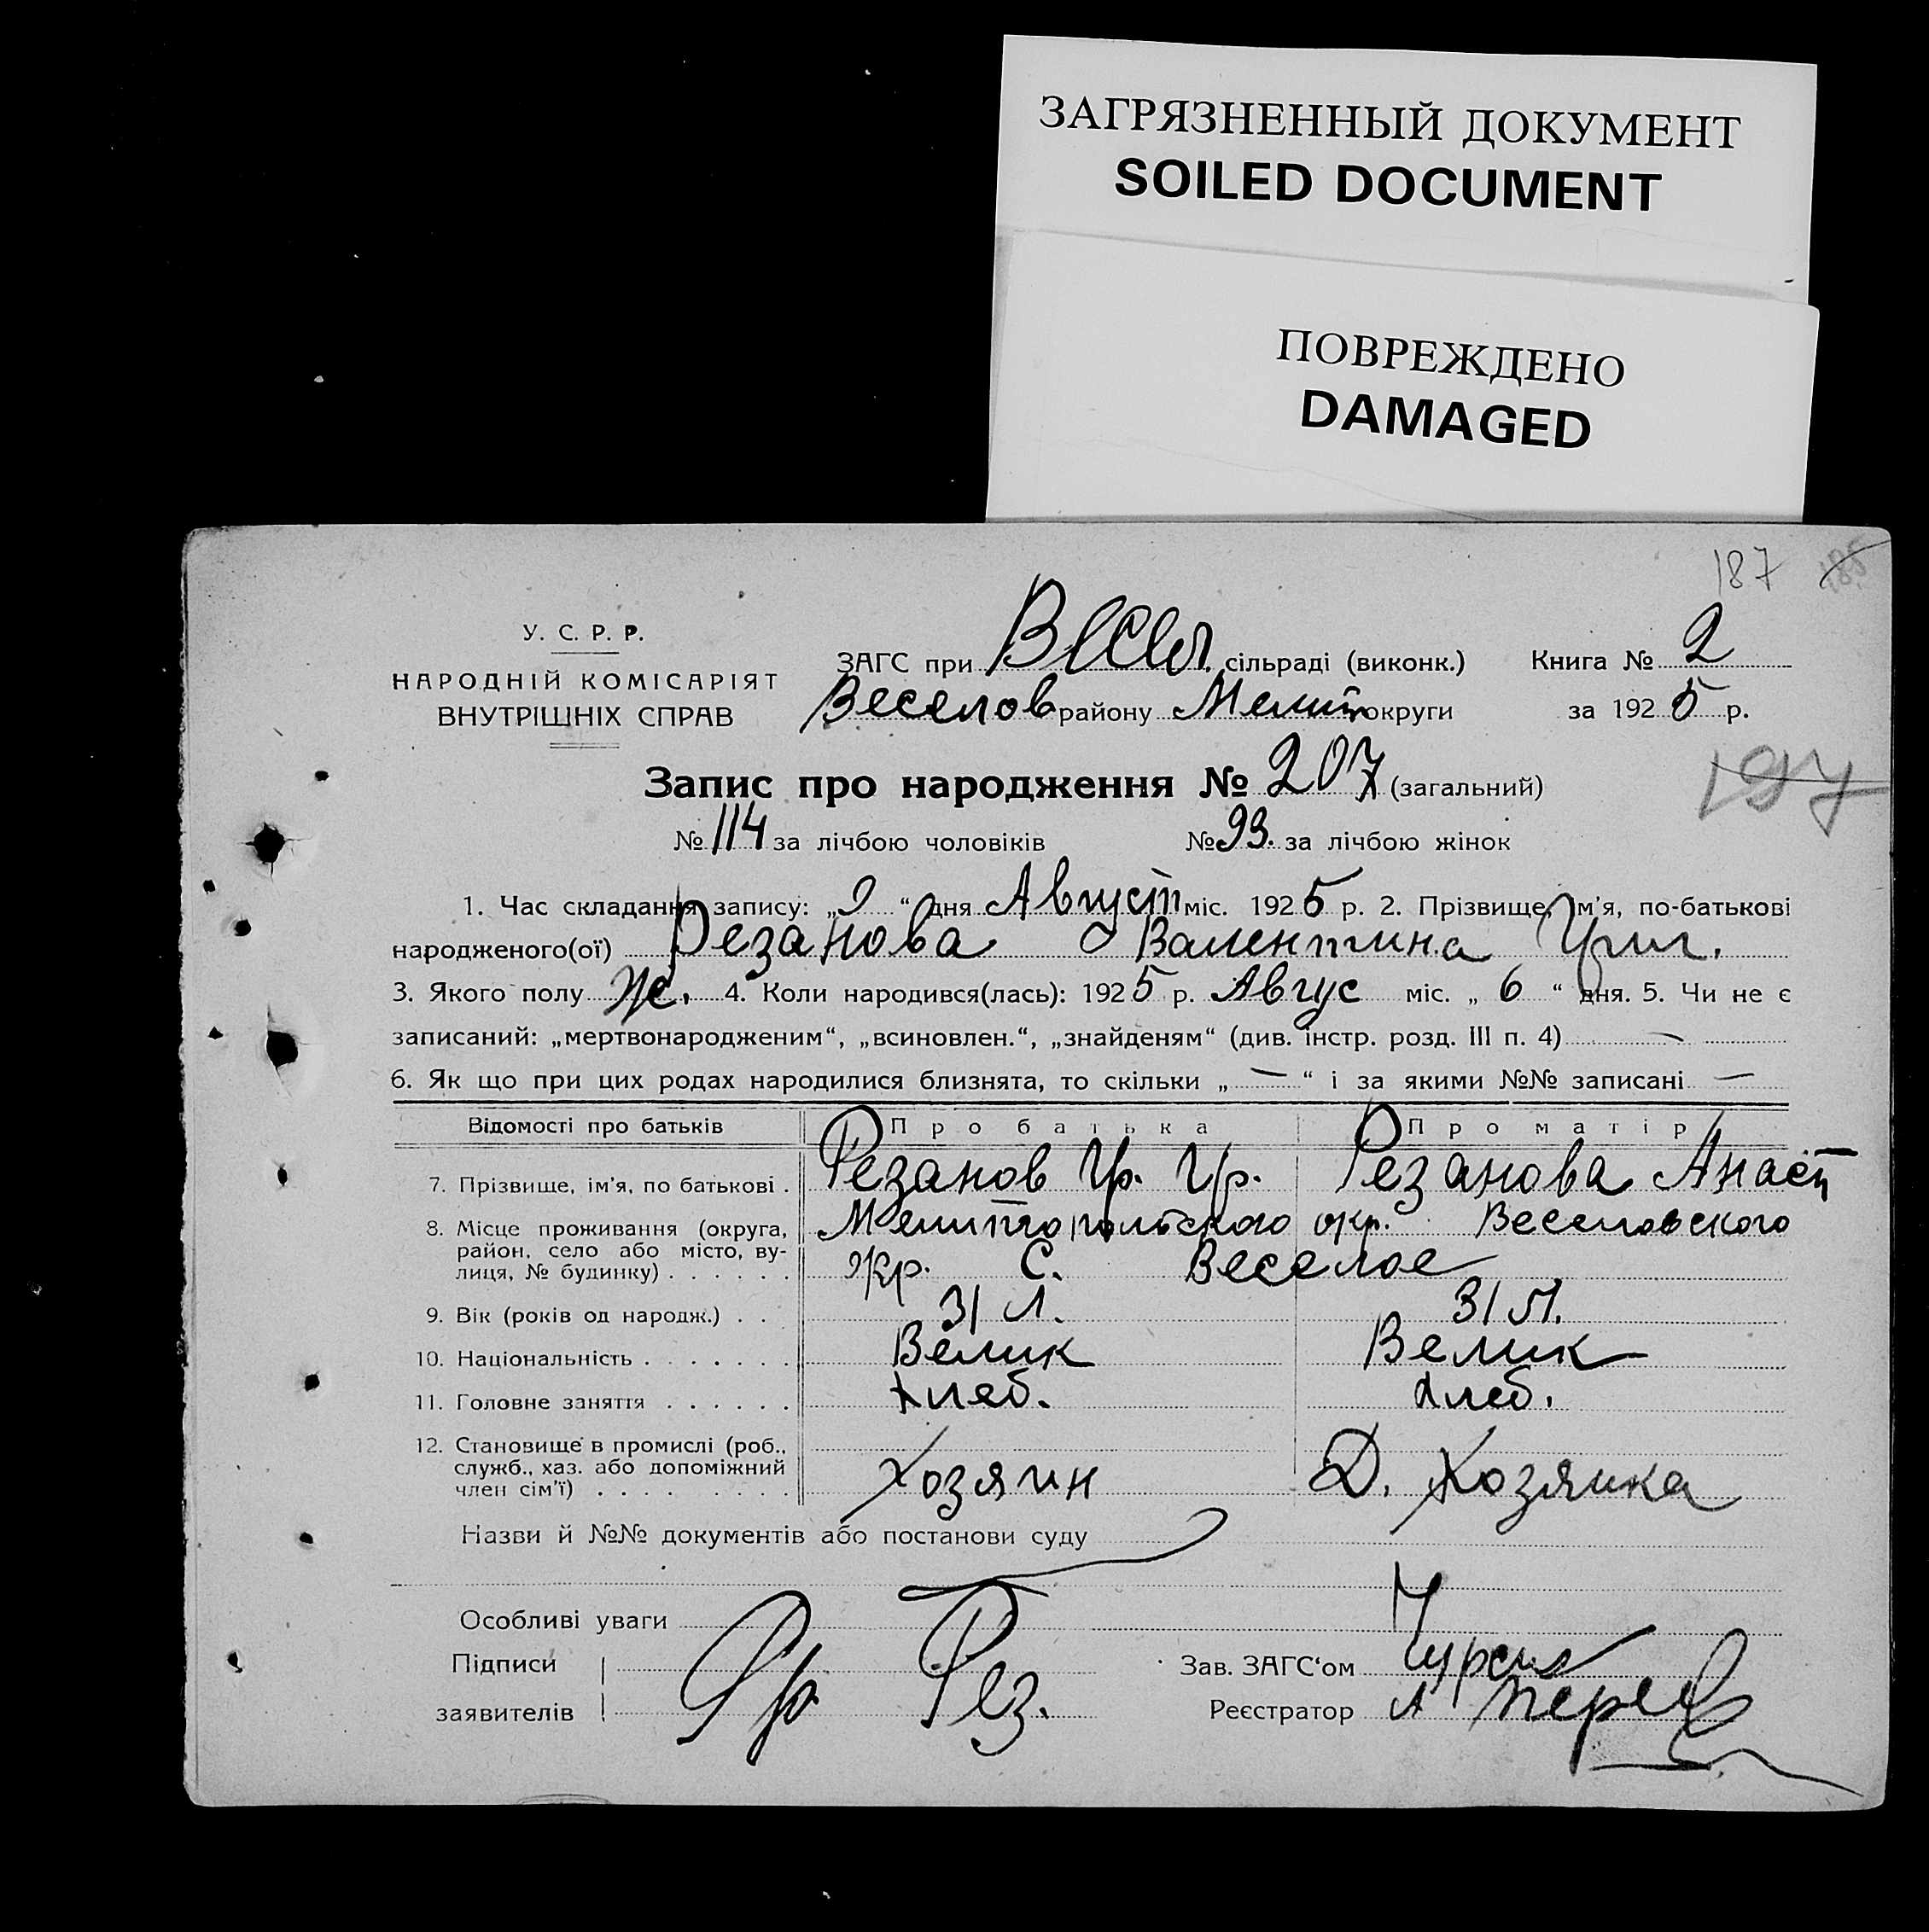 ЗАГРЯЗНЕННЫЙ ДОКУМЕНТ
SOILED DOCUMENT
ПОВРЕЖДЕНО
DAMAGED
187
У. С. Р. Р.
НАРОДНІЙ КОМІСАРІЯТ
ВНУТРІШНІХ СПРАВ
ЗАГС при сільраді (виконк.) Книга № 2
Веселов району Мелит округи за 1925 р.
Запис про народження № 207 (загальний)
197
№ 114 за лічбою чоловіків № 93. за лічбою жінок
1. Час складання запису: „9“ дня Август міс. 1925 р. 2. Прізвище, ім'я, по-батькові
народженого(ої) Резанова Валентина Григ.
3. Якого полу Ж. 4. Коли народився(лась): 1925 р. Авгус міс. „6“ дня. 5. Чи не є
записаний: „мертвонародженим“, „всиновлен.“, „знайденям“ (див. інстр. розд. III п. 4) —
6. Як що при цих родах народилися близнята, то скільки „—“ і за якими №№ записані —
Відомості про батьків Про батька Про матір
7. Прізвище, ім'я, по батькові . Резанов Гр. Гр. Резанова Анаст
8. Місце проживання (округа, Мелитопольского окр. Веселовского
район, село або місто, ву-
лиця, № будинку) . . . . . . окр. С. Веселое
9. Вік (років од народж.) . . . 31 Л. 31 Л.
10. Національність . . . . . . . Велик Велик
11. Головне заняття . . . . . . Хлеб. Хлеб.
12. Становище в промислі (роб.,
служб., хаз. або допоміжний
член сім'ї) . . . . . . . . . Хозяин Д. Хозяйка
Назви й №№ документів або постанови суду
Особливі уваги
Підписи Зав. ЗАГС'ом
заявителів Гр Рез. Реєстратор